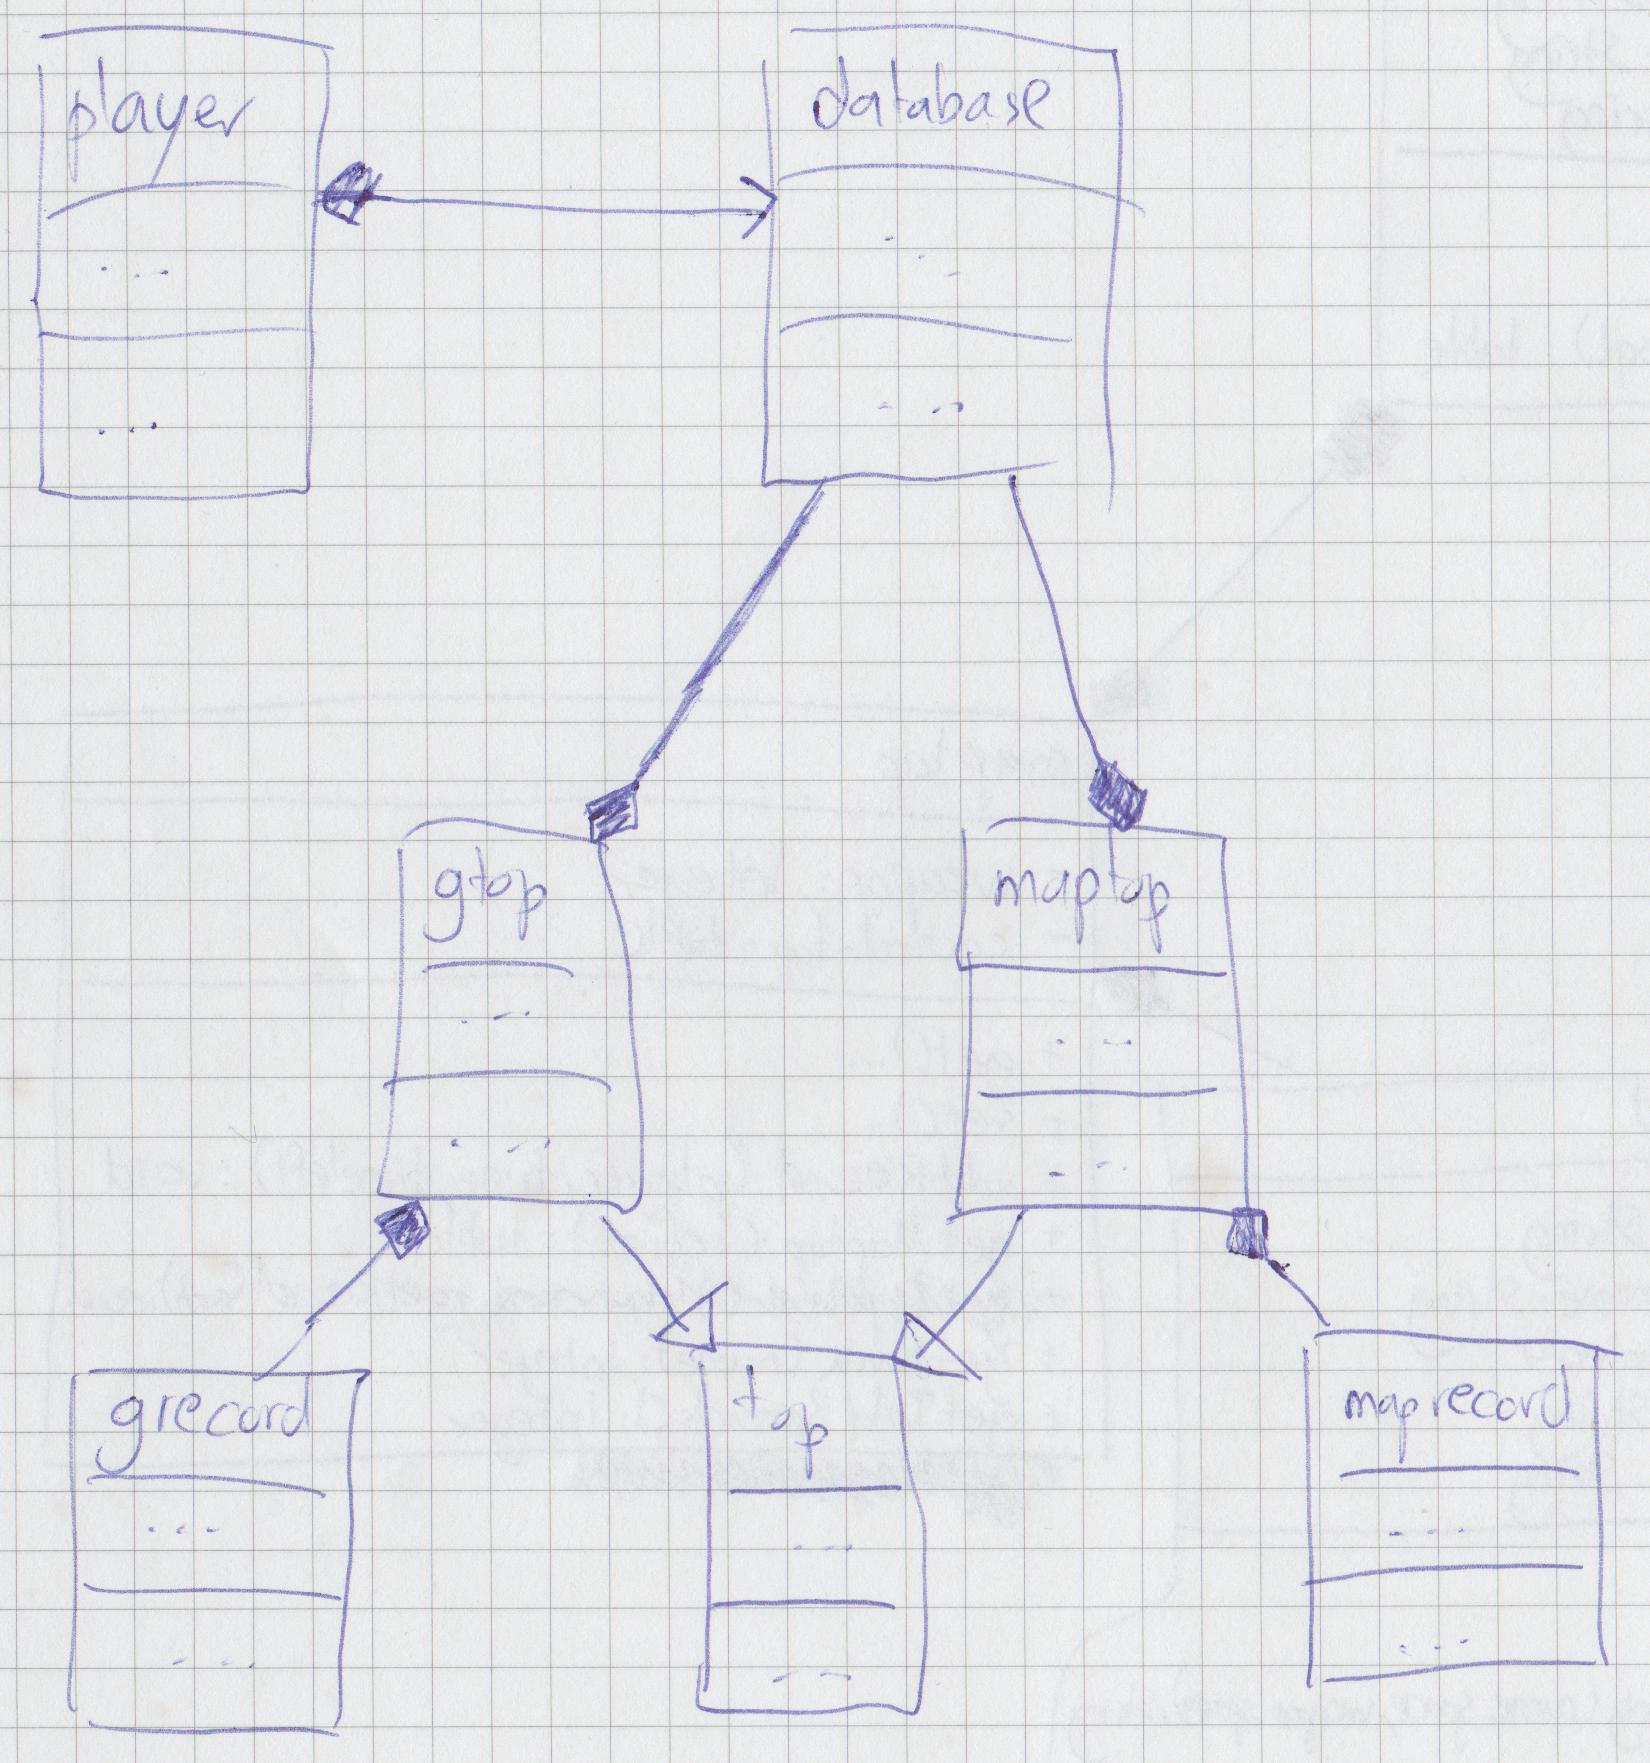 player
...
...
database
...
...
gtop
...
...
maptop
...
...
grecord
...
...
top
...
...
maprecord
...
...